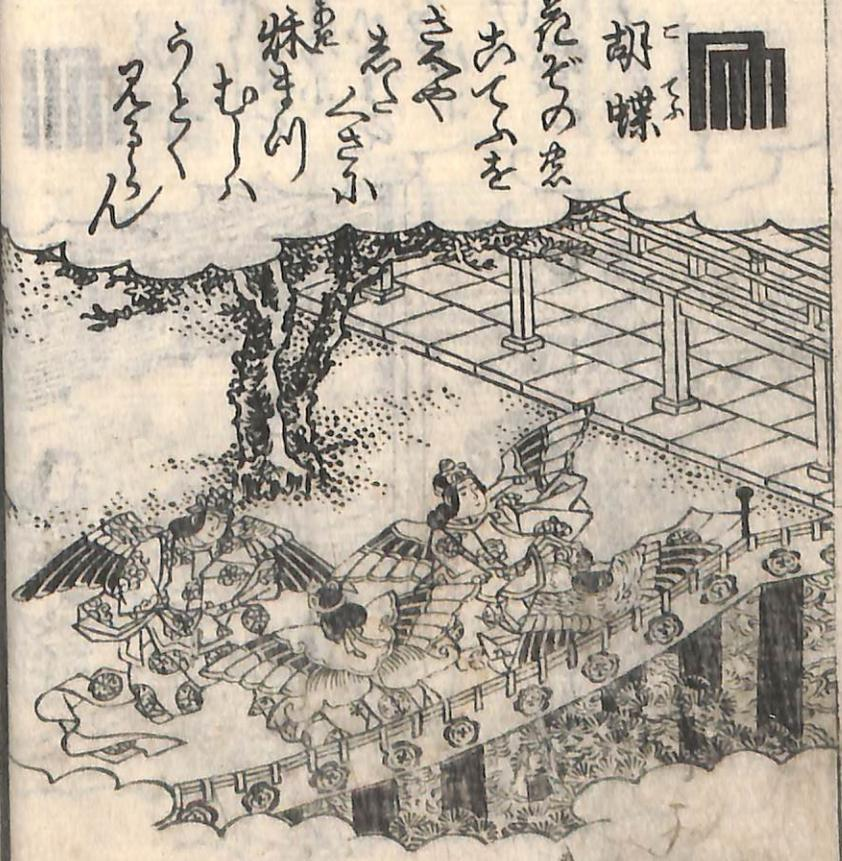 胡蝶
こてふ
花ぞのの
こてふを
さへや
した
くさに
秋まつ
あき
むしハ
うとく
見るらん